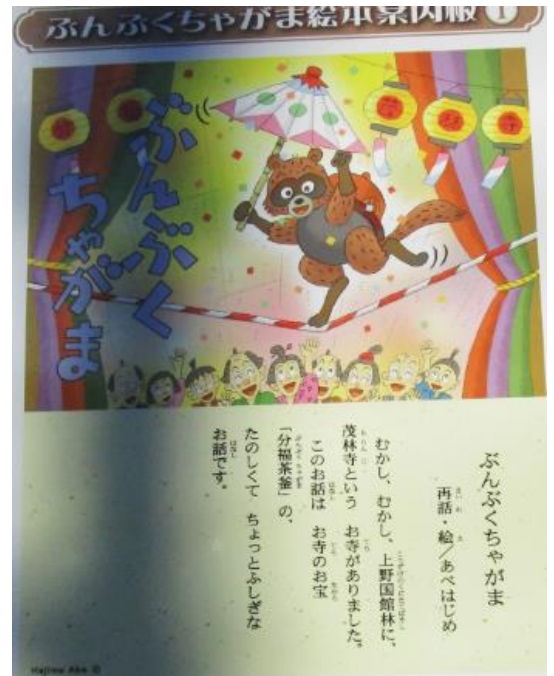 ぶんぶくちゃがま絵本案内板①
ぶんぶく
ちゃがま
ぶんぶくちゃがま
再話・絵/あべはじめ
むかし、むかし、上野国館林に、
茂林寺という お寺がありました。
このお話は お寺のお宝
「分福茶釜」の、
たのしくて ちょっとふしぎな
お話です。
Hajime Abe ©